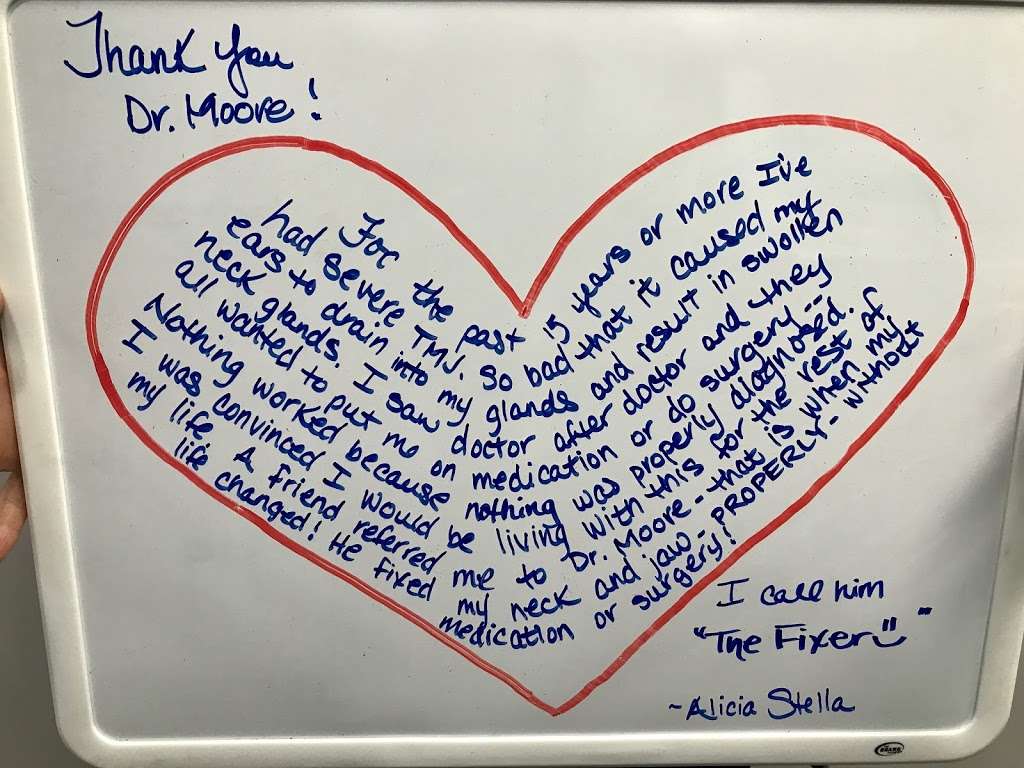 Thank You
Dr. Moore!
For the past 15 years or more I've
had severe TMJ. So bad that it caused my
ears to drain into my glands and result in swollen
neck glands. I saw doctor after doctor and they
all wanted to put me on medication or do surgery--
Nothing worked because nothing was properly diagnosed.
I was convinced I would be living with this for the rest of
my life. A friend referred me to Dr. Moore - that is when my
life changed! He fixed my neck and jaw - PROPERLY - without
medication or surgery!
I call him
"The Fixer"
~Alicia Stella